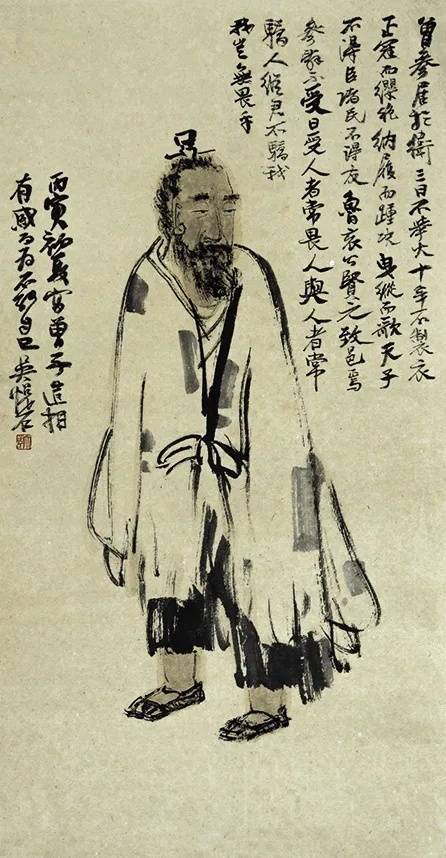 曾參居於衛三日不舉火十年不製衣
正冠而纓絕納履而踵決曳縱而歌天子
不得臣諸不得友魯哀公賢之致邑焉
參辭不受曰受人者常畏人與人者常
驕人縱君不驕我
我豈無畏乎
丙寅初夏寫曾子造相
有感而不能自已 吳石